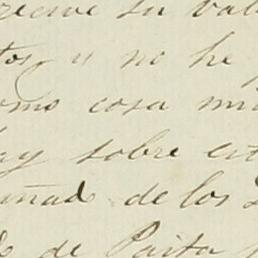 recive su val
tos y no he
omo cosa mi
ay sobre est
uñad de los
de Paita